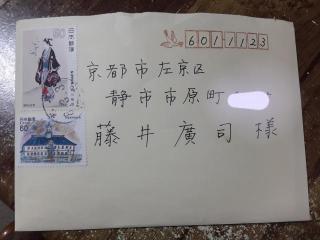 6011123
京都市左京区
静市市原町
藤井廣司様
日本郵便
60
日本郵便
60